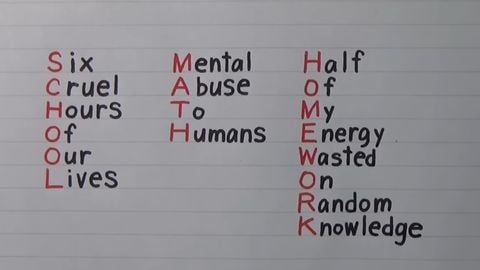 Six
Cruel
Hours
Of
Our
Lives
Mental
Abuse
To
Humans
Half
Of
My
Energy
Wasted
On
Random
Knowledge